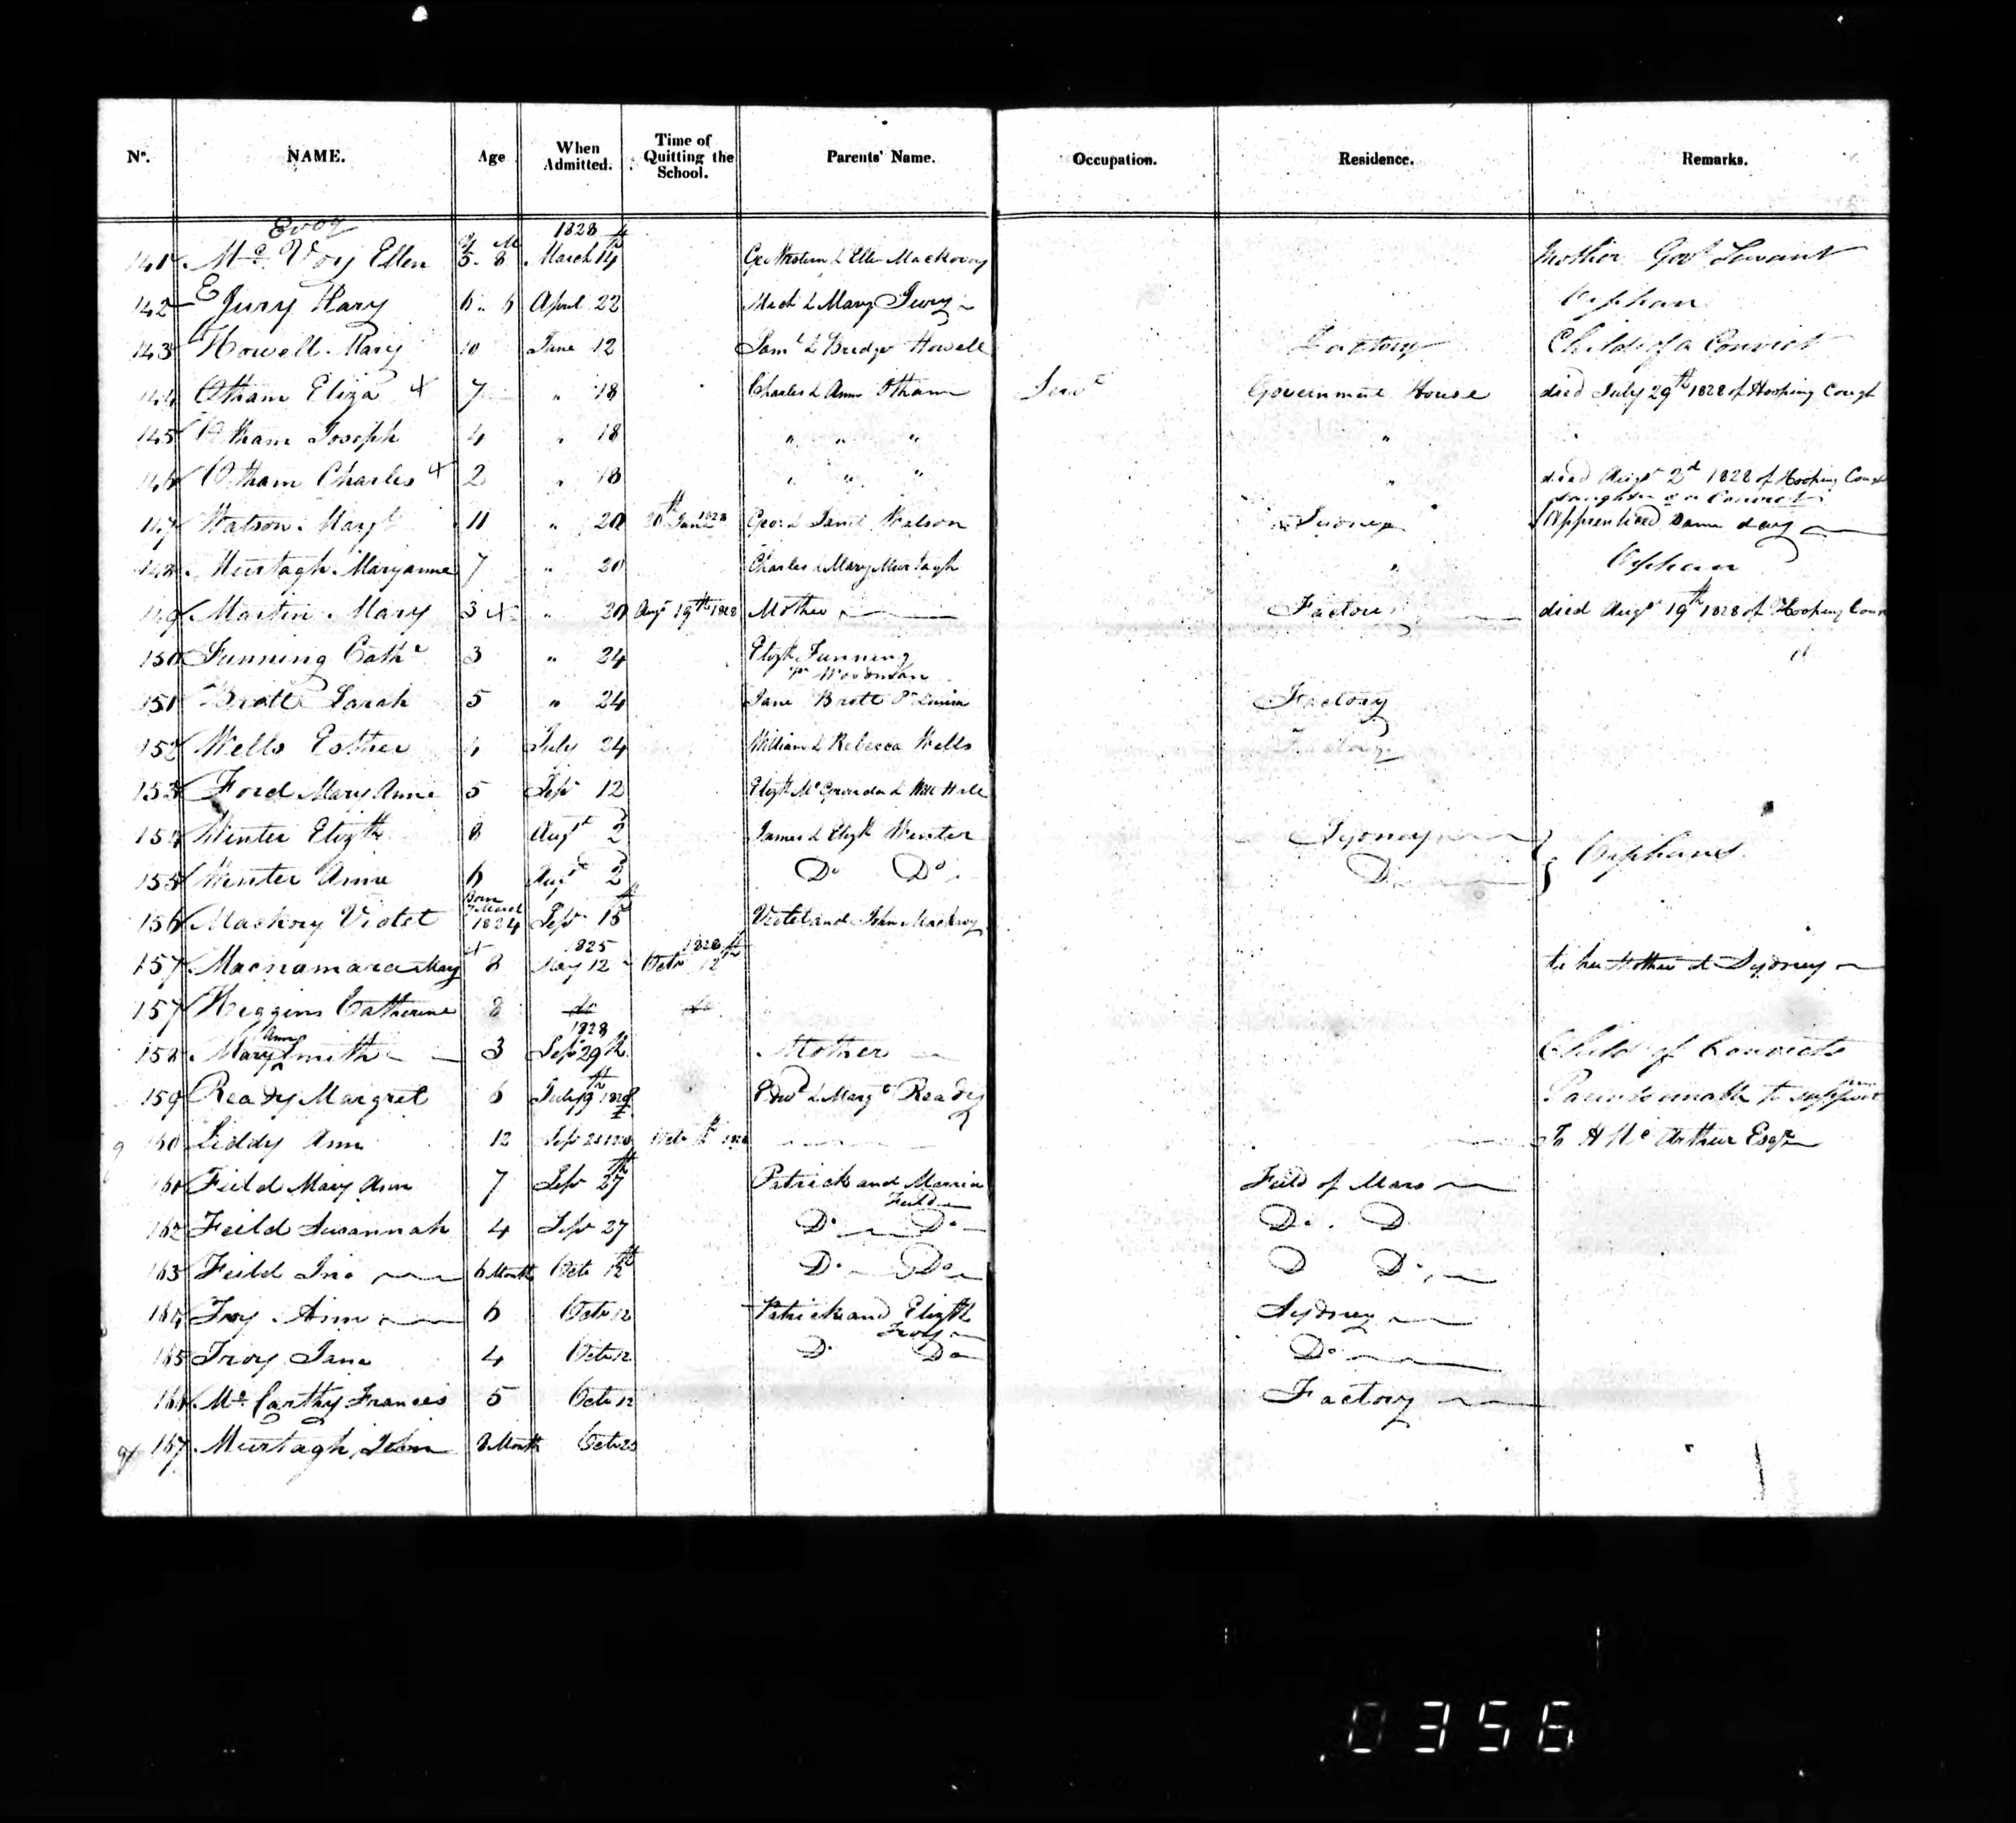 No. NAME. Age When Admitted. Time of Quitting the School. Parents' Name. Occupation. Residence. Remarks.
Evoy 1828
141 Mc Voy Ellen 5 8 March 14th Geo Western & Ellen Mackovoy Mother Govt Servant
142 Jury Mary 6 6 April 22 Mich & Mary Jury Orphan
143 Howell Mary 10 June 12 Saml & Bridget Howell Factory Child of a Convict
144 Otham Eliza x 7 " 18 Charles & Ann Otham Servt Government House died July 29th 1828 of Hooping Cough
145 Otham Joseph 4 " 18 " " " "
146 Otham Charles x 2 " 18 " " " " died Augt 2d 1828 of Hooping Cough
daughter of a Convict
147 Watson Margt 11 " 20 20th June 1828 Geo & Janet Watson Sydney Apprenticed same day
148 Murtagh Maryanne 7 " 20 Charles & Mary Murtagh " Orphan
149 Martin Mary 3 x " 20 Augt 19th 1828 Mother Factory died Augt 19th 1828 of Hooping Cough
150 Funning Cathe 3 " 24 Elizth Funning
151 Brott Sarah 5 " 24 Jane Brott Factory
152 Wells Esther 4 July 24 William & Rebecca Wells Factory
153 Ford Mary Anne 5 Sepr 12 Elizth & Will Hall
154 Winter Elizth 8 Augt 2 James & Elizth Winter Sydney Orphans
155 Winter Anne 6 Augt 2 Do Do Do
Born March
156 Mackory Violet 1824 Sepr 15th Violet and John Mackroy
1825 1828
157 Macnamara Mary x 8 May 12 Octr 12th to her Mother at Sydney
157 Higgins Catherine 8 do do
Ann 1828
158 Mary Smith 3 Sepr 29th Mother Child of Convicts
159 Ready Margret 6 July 19th 1828 Edwd & Margt Ready Parents unable to support
160 Liddy Ann 12 Sepr To H Mc Arthur Esqr
161 Feild Mary Ann 7 Sepr 27th Patrick and Marria Feild Feild of Mars
162 Feild Susannah 4 Sepr 27 Do Do Do Do
163 Feild Jno 6 Month Octr 12th Do Do Do Do
164 Troy Ann 6 Octr 12 Patrick and Elizth Troy Sydney
165 Troy Jane 4 Octr 12 Do Do Do
166 Mc Carthy Frances 5 Octr 12 Factory
167 Murtagh John 8 Month Octr 20
0356